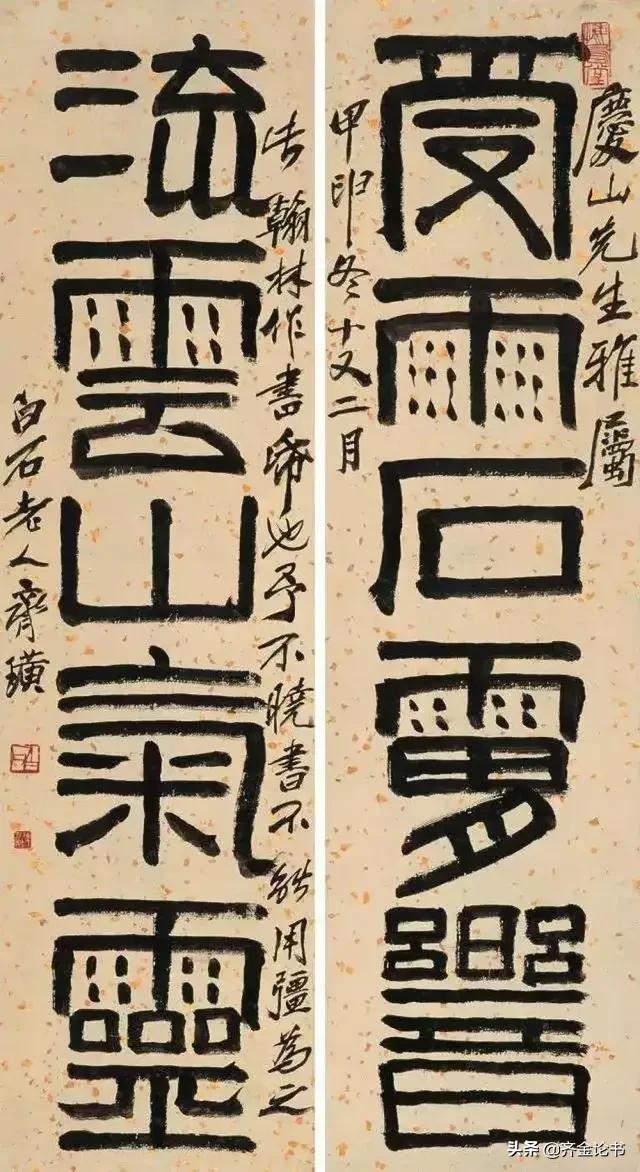 慶山先生雅屬
受雨石
甲申冬十又二月
翰林作書幣也予不曉書不能用彊為之
流雲山氣靈
白石老人齊璜
头条 @齐金论书